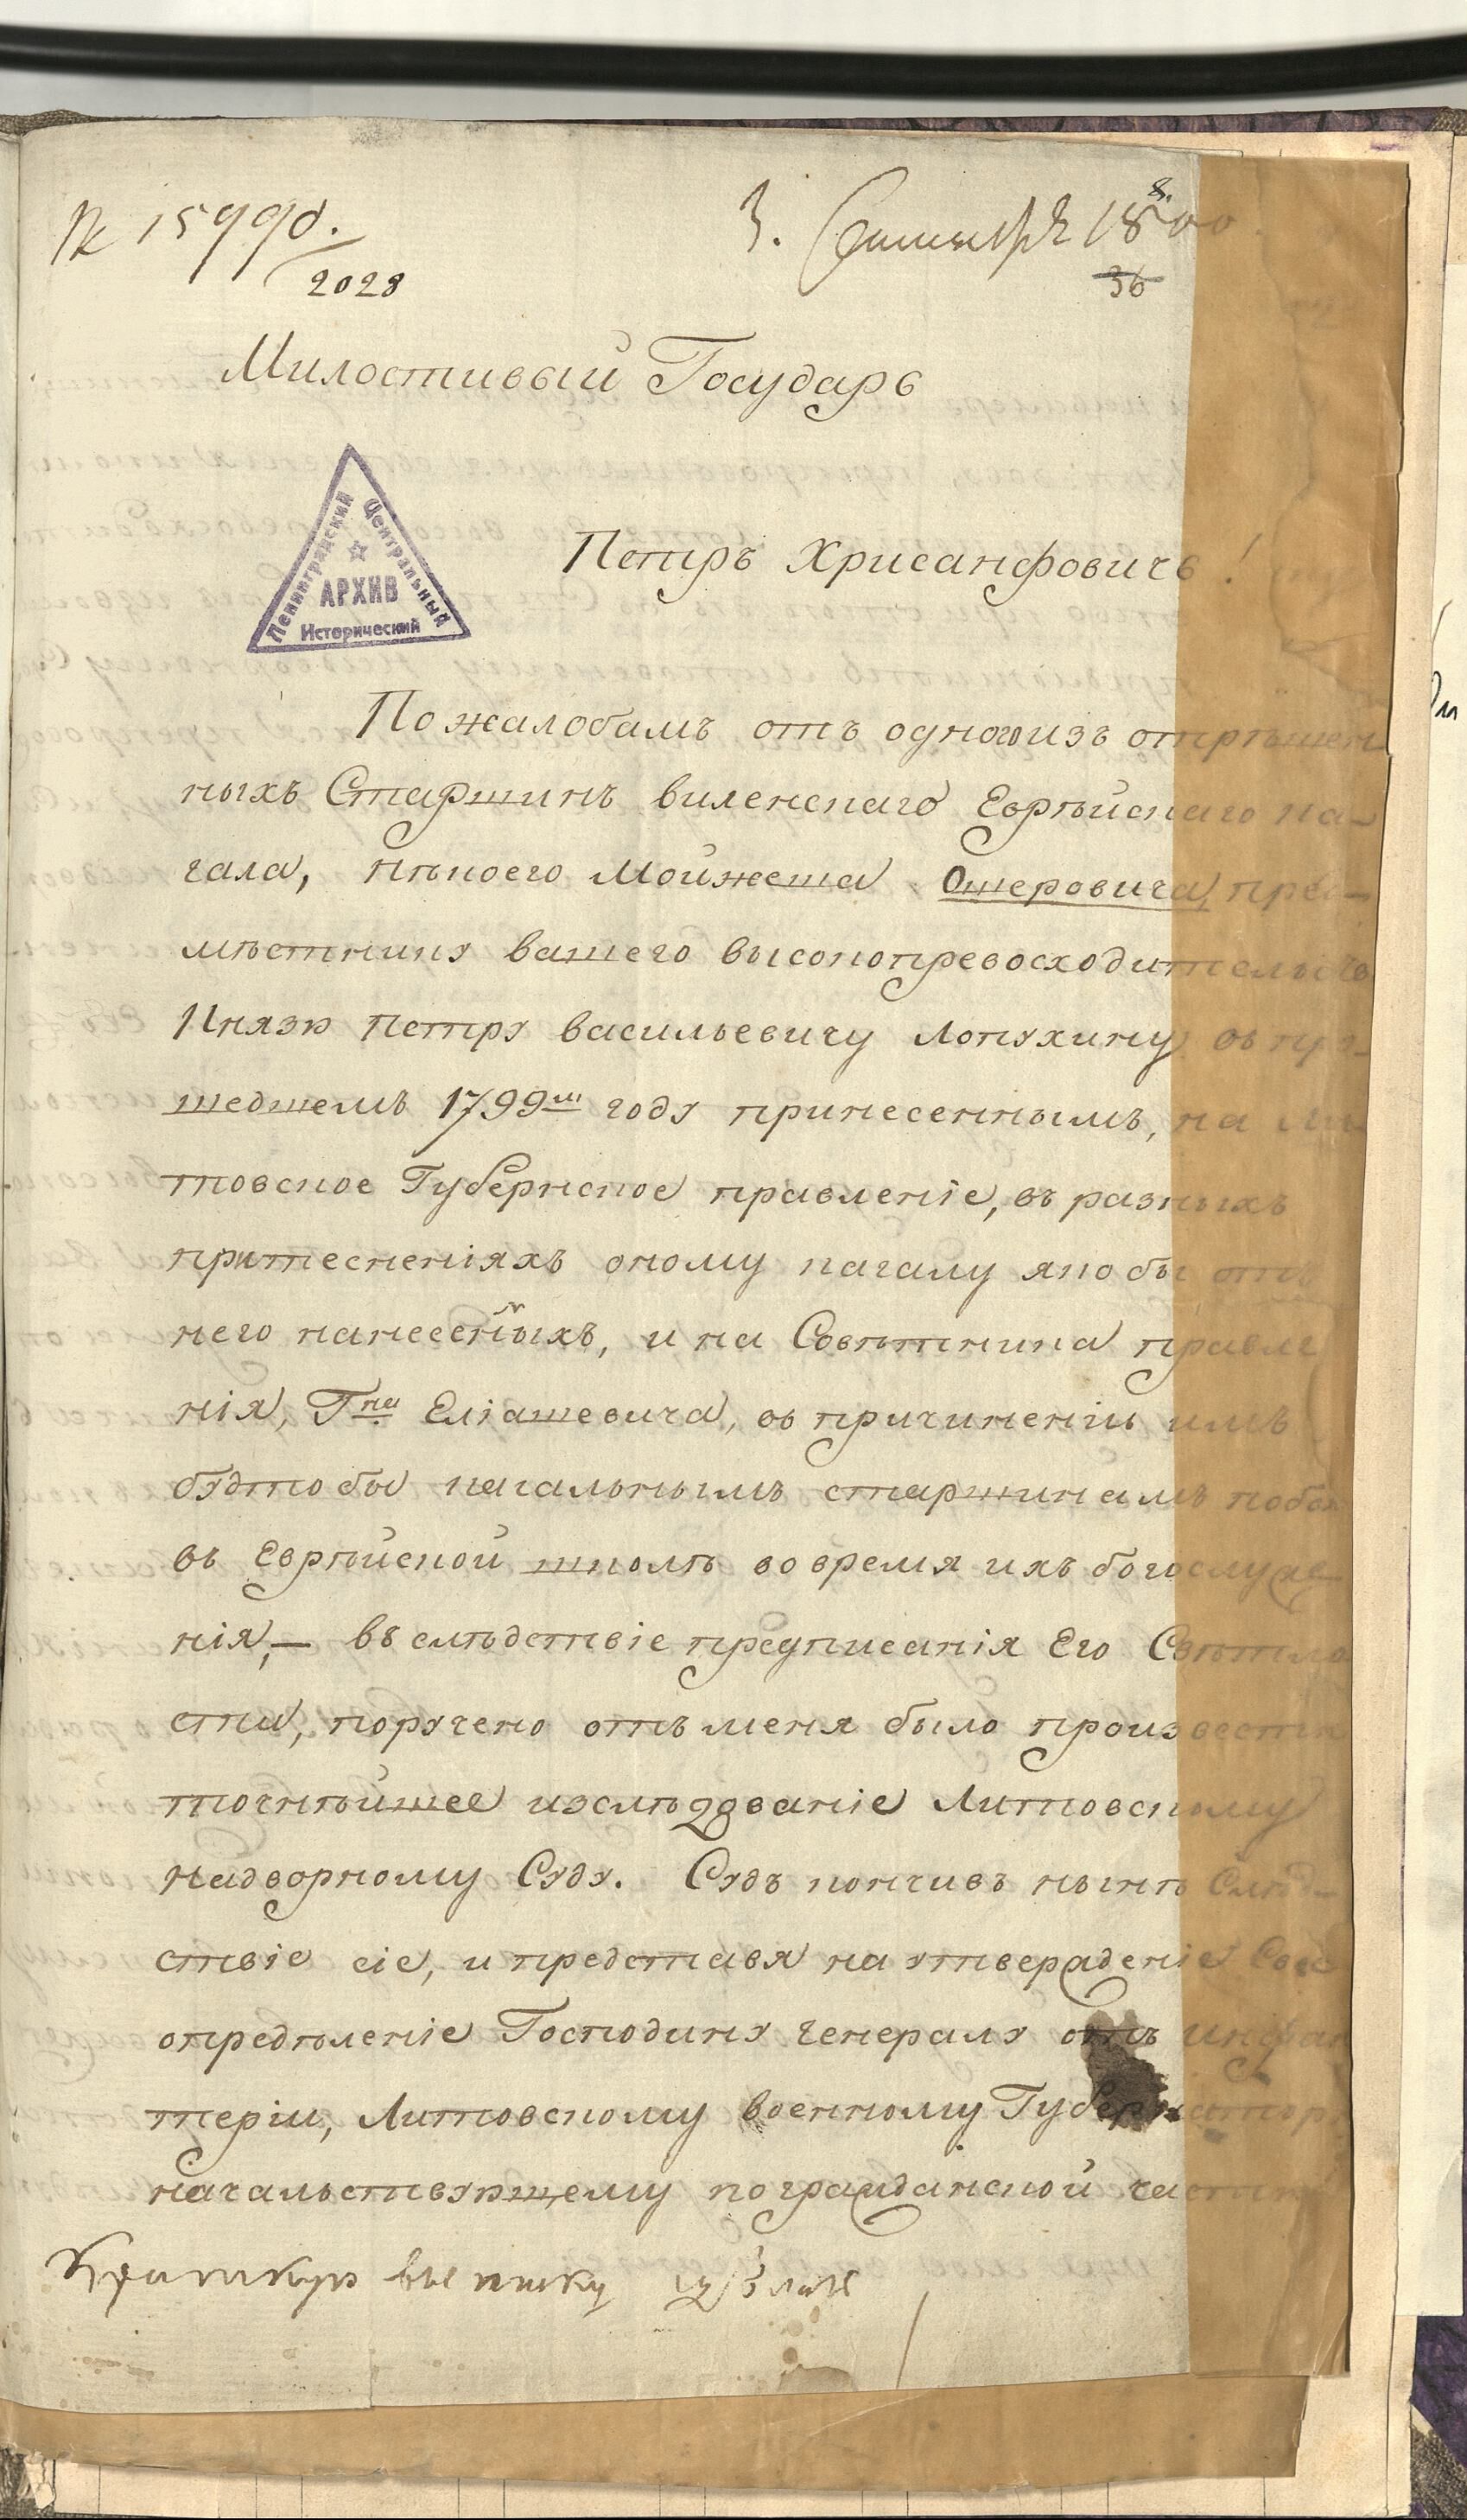 № 15990.
2028
3. Сентября 1800
8.
36
Милостивый Государь
Ленинградский Центральный
АРХИВ
Исторический
Петръ Хрисанфовичь!
По жалобамъ отъ одного изъ отрѣшен
ныхъ Старшинъ виленскаго Еврѣйскаго ка-
гала, нѣкоего Мойжеша Ошеровича, пред-
мѣстнику вашего высокопревосходительства
Князю Петру Васильевичу Лопухину въ про-
шедшемъ 1799мъ году принесеннымъ, на Ли-
товское Губернское правленіе, въ разныхъ
притесненіяхъ оному кагалу якобы отъ
него нанесенныхъ, и на Совѣтника правле
нія, Гна Еліашевича, въ причиненіи имъ
будтобы кагальнымъ старшинамъ побои
въ Еврѣйской школѣ во время ихъ богослуже
нія,— въ слѣдствіе предписанія Его Свѣтло
сти, поручено отъ меня было произвести
точнѣйшее изслѣдованіе Литовскому
Надворному Суду. Судъ кончивъ нынѣ Слѣд-
ствіе сіе, и представя на утвержденіе Свое
опредѣленіе Господину Генералу отъ инфан
теріи, Литовскому военному Губернатору
начальствующему по гражданской части
Краткую выписку